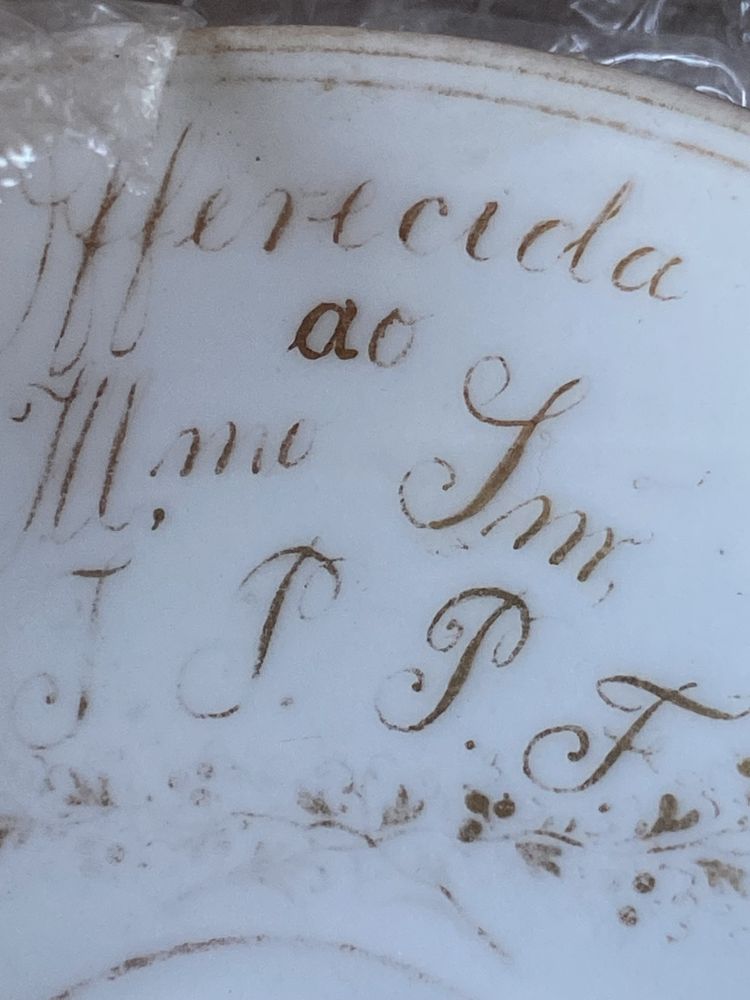 Offerecida
ao
Ill.mo Snr.
J. P. P. F.